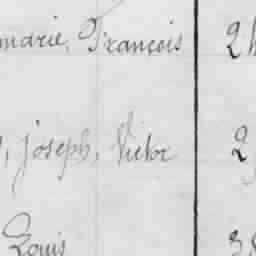 marie, François 2
, joseph, Victor 2
Louis 3